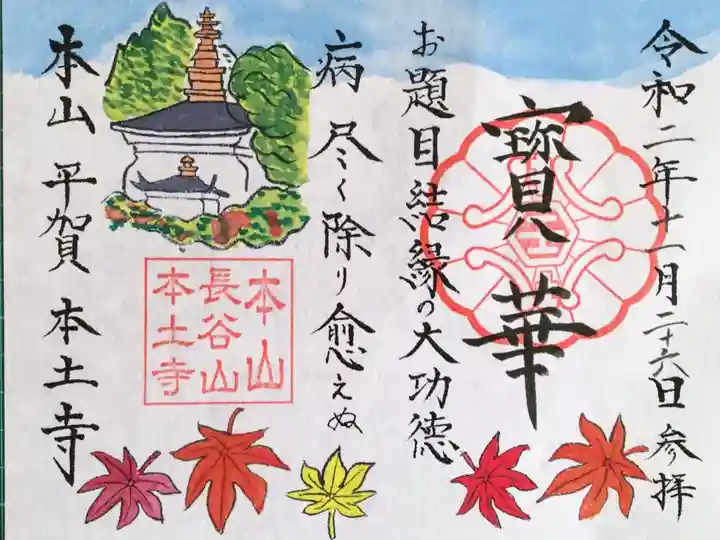 令和二年十一月二十六日 参拝
寶華
お題目結縁の大功徳
病 尽く除り愈えぬ
本山 平賀 本土寺
本山
長谷山
本土寺